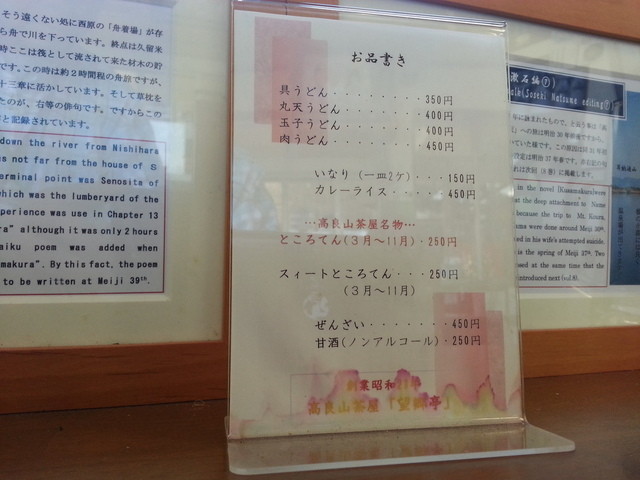 そう遠くない処に西原の「舟着場」が存
ら舟で川を下っています。終点は久留米
時ここは筏として流されて来た材木の貯
です。この時は約2時間程の舟旅ですが、
十三章に活かしています。そして草枕を
たのが、右等の俳句です。ですからこの
と記録されています。
down the river from Nishihara
as not far from the house of S
terminal point was Senosita of
which was the lumberyard of the
xperience was use in Chapter 13
ra" although it was only 2 hours
aiku poem was added when
makura". By this fact, the poem
to be written at Meiji 39th.
お品書き
具うどん・・・・・・・・・350円
丸天うどん・・・・・・・・400円
玉子うどん・・・・・・・・400円
肉うどん・・・・・・・・・450円
いなり(一皿2ケ)・・・150円
カレーライス・・・・・450円
…高良山茶屋名物…
ところてん(3月～11月)・250円
スィートところてん・・・250円
(3月～11月)
ぜんざい・・・・・・・450円
甘酒(ノンアルコール)・250円
高良山茶屋「望郷亭」
漱石編⑦
(Soseki Natsume editing⑦)
in the novel [Kusamakura] were
the deep attachment to Name
because the trip to Mt. Koura.
ms were done around Meiji 30th.
ed in his wife's attempted suicide.
is the spring of Meiji 37th. Two
osed at the same time that the
introduced next (vol.8).